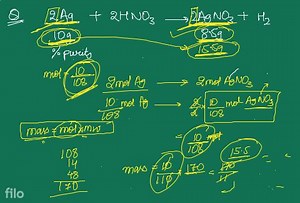 Q 2Ag + 2HNO3 → 2AgNO3 + H2
10g 8.5g
% purity 15.5g
mol = 10/108
2 mol Ag → 2 mol AgNO3
10/108 mol Ag → 10/108 mol AgNO3
mass = mol × mw
= 10/108 mol
108
14
48
170
mass = 10/110 × 170 = 170/11
15.5
filo